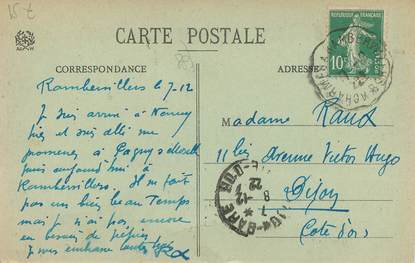 CARTE POSTALE
CORRESPONDANCE
ADRESSE
RÉPUBLIQUE FRANÇAISE
10
Rambervillers le 7-12
Je suis arrivé à Nancy
hier et suis allé me
promener à
puis aujourd'hui à
Rambervillers. Il ne fait
pas un bien beau Temps
mais je n'ai pas encore
eu besoin de pépin
Je vous embrasse
Madame Raux
11 bis Avenue Victor Hugo
Dijon
Côte d'or
GARE